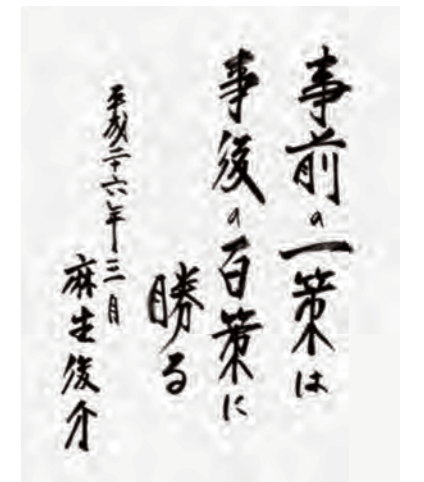 事前の一策は
事後の百策に
勝る
平成二十六年三月
麻生俊介